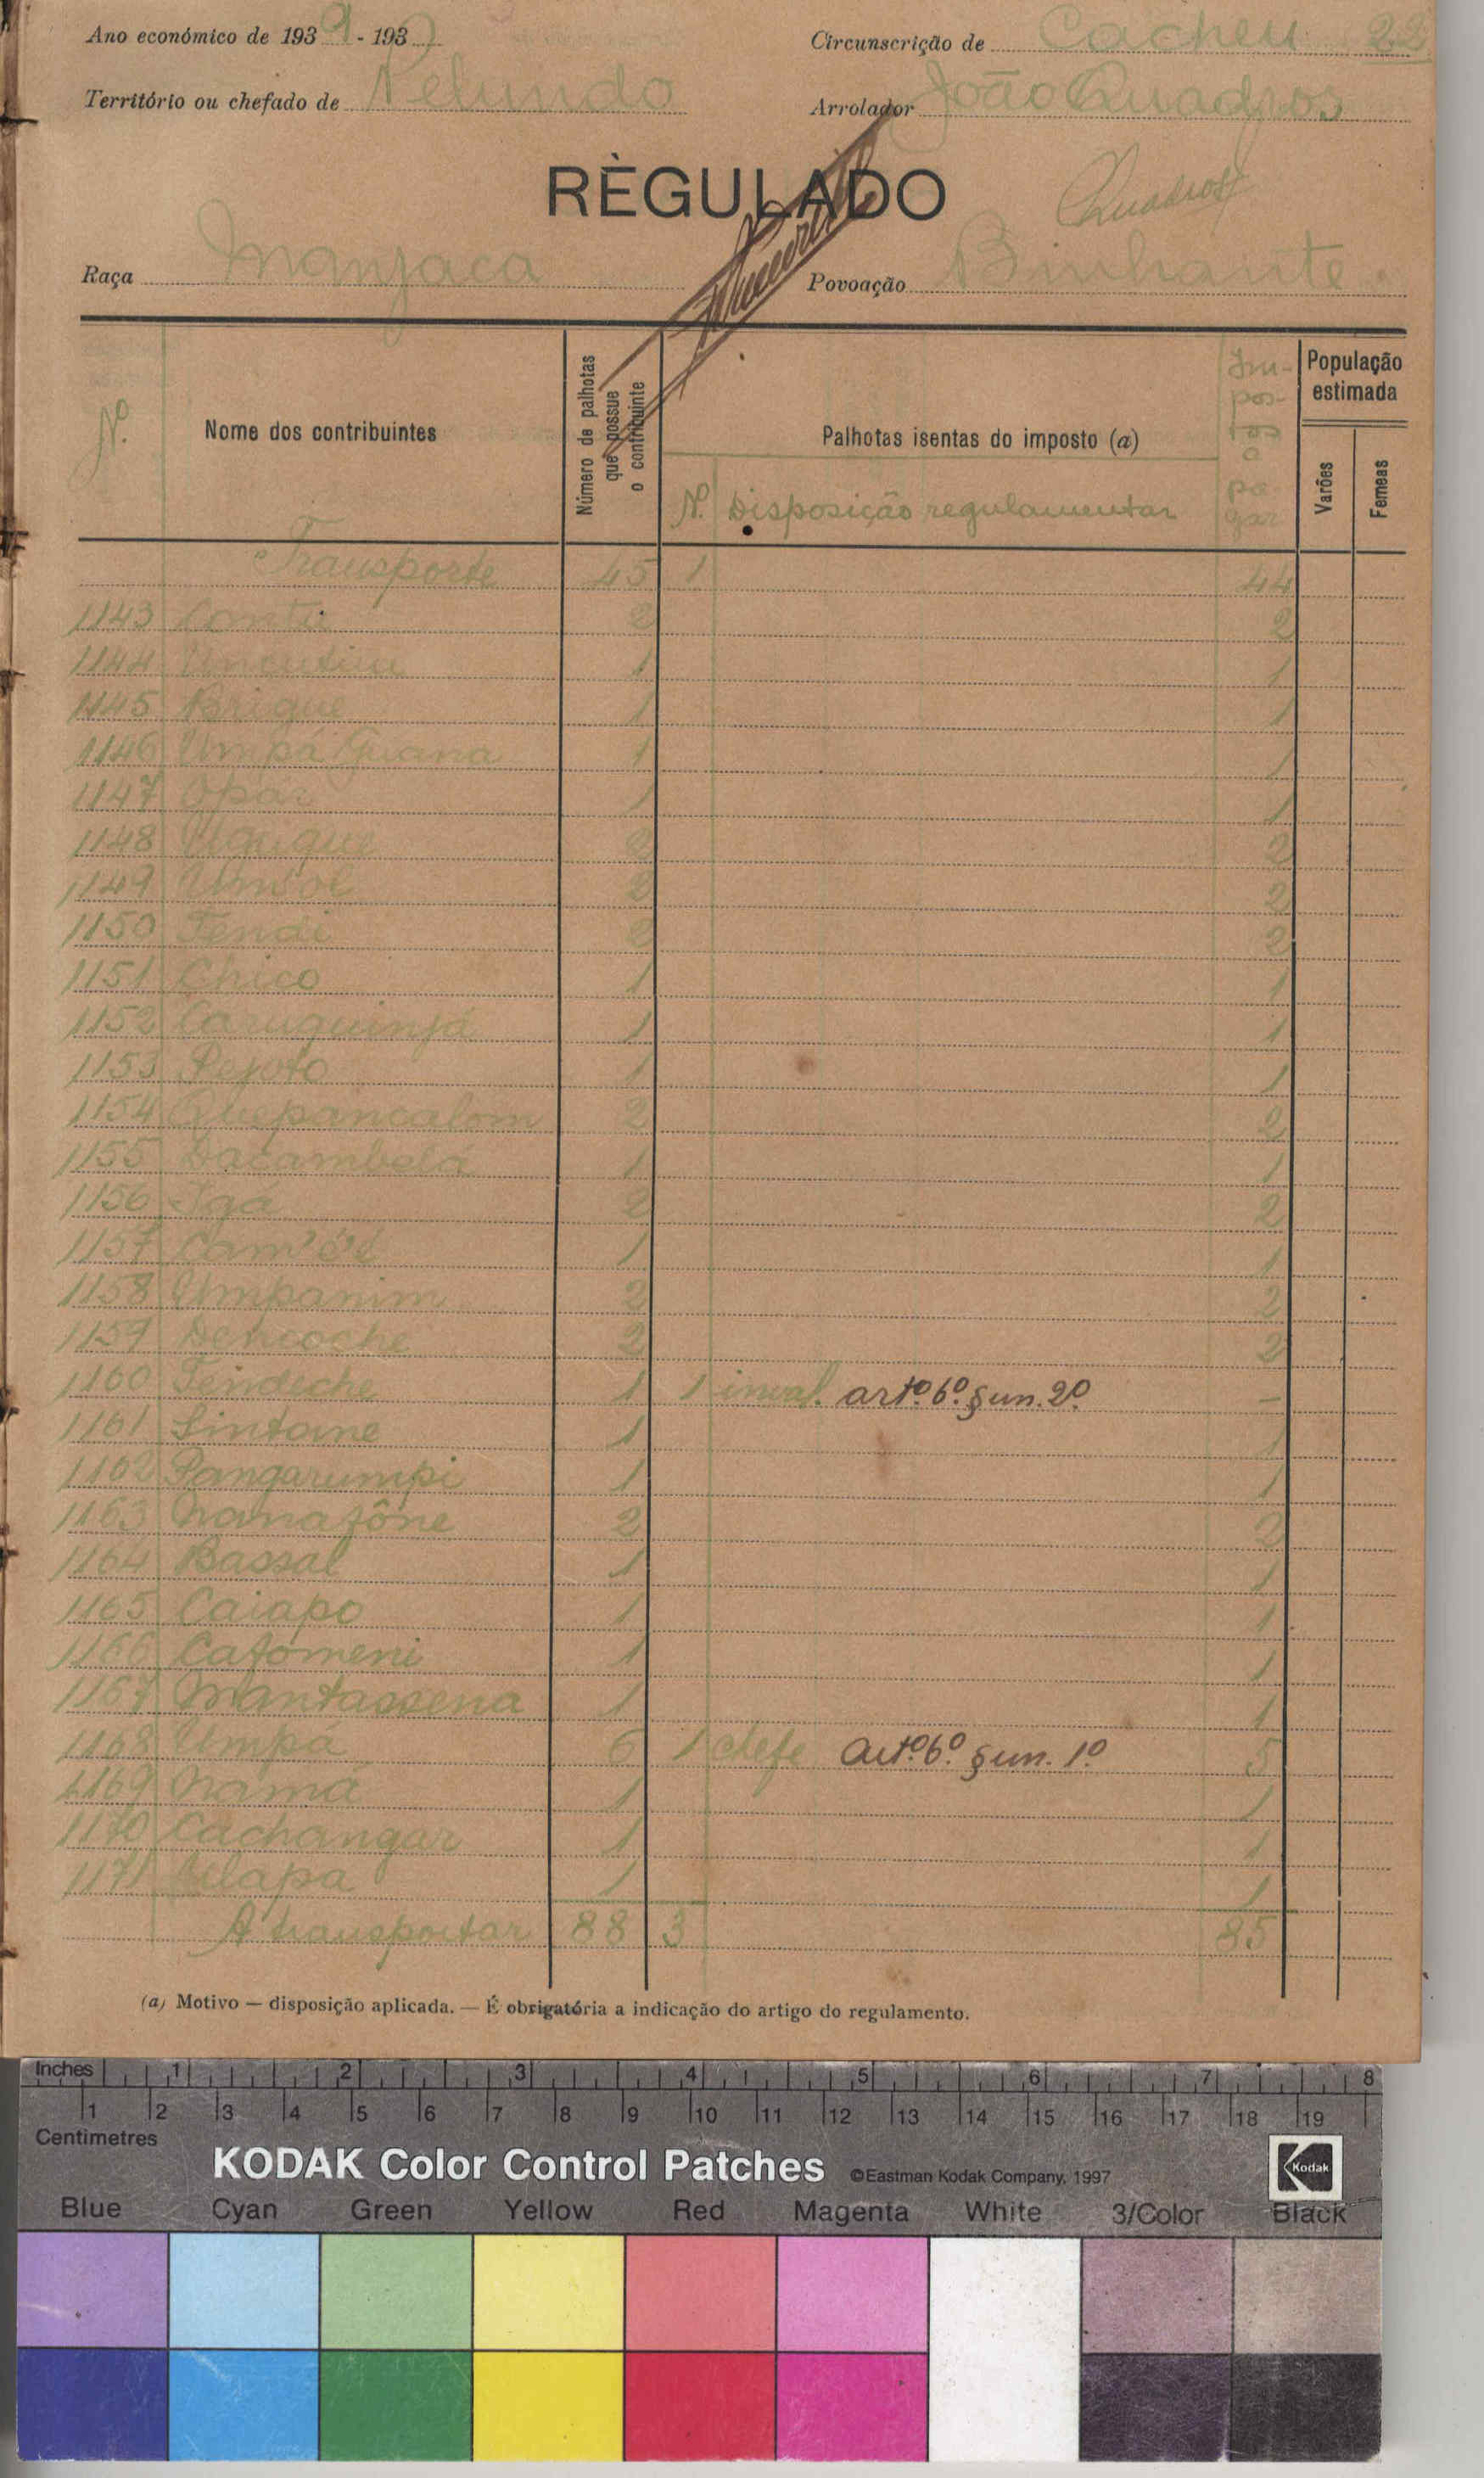 Ano económico de 1939 - 193
Circunscrição de Cacheu 22
Território ou chefado de Pelundo
Arrolador João Quadros
RÈGULADO
Quadros
Raça Manjaca
Povoação Binhante
Nº
Nome dos contribuintes
Número de palhotas que possue o contribuinte
Palhotas isentas do imposto (a)
Nº. Disposição regulamentar
Impostos a pagar
População estimada
Varões
Femeas
Transporte 45 1 44
1143 2 2
1144 1 1
1145 Brique 1 1
1146 Umpá Guana 1 1
1147 Opar 1 1
1148 2 2
1149 Umsol 2 2
1150 Fendi 2 2
1151 Chico 1 1
1152 Caruguinjá 1 1
1153 1 1
1154 Quepancalom 2 2
1155 Dacambelá 1 1
1156 2 2
1157 1 1
1158 Umpanim 2 2
1159 2 2
1160 Fendeche 1 1 inval. artº. 6º. § un. 2º. -
1161 Sintome 1 1
1162 Pangarumpi 1 1
1163 2 2
1164 Bassal 1 1
1165 Caiapo 1 1
1166 Cafomeni 1 1
1167 Mantassena 1 1
1168 Umpá 6 1 chefe Artº. 6º. § un. 1º 5
1169 Namá 1 1
1170 Cachangar 1 1
1171 1 1
A transportar 88 3 85
(a) Motivo — disposição aplicada. — É obrigatória a indicação do artigo do regulamento.
Inches 1 2 3 4 5 6 7 8
1 2 3 4 5 6 7 8 9 10 11 12 13 14 15 16 17 18 19
Centimetres
KODAK Color Control Patches ©Eastman Kodak Company, 1997
Kodak
Blue Cyan Green Yellow Red Magenta White 3/Color Black